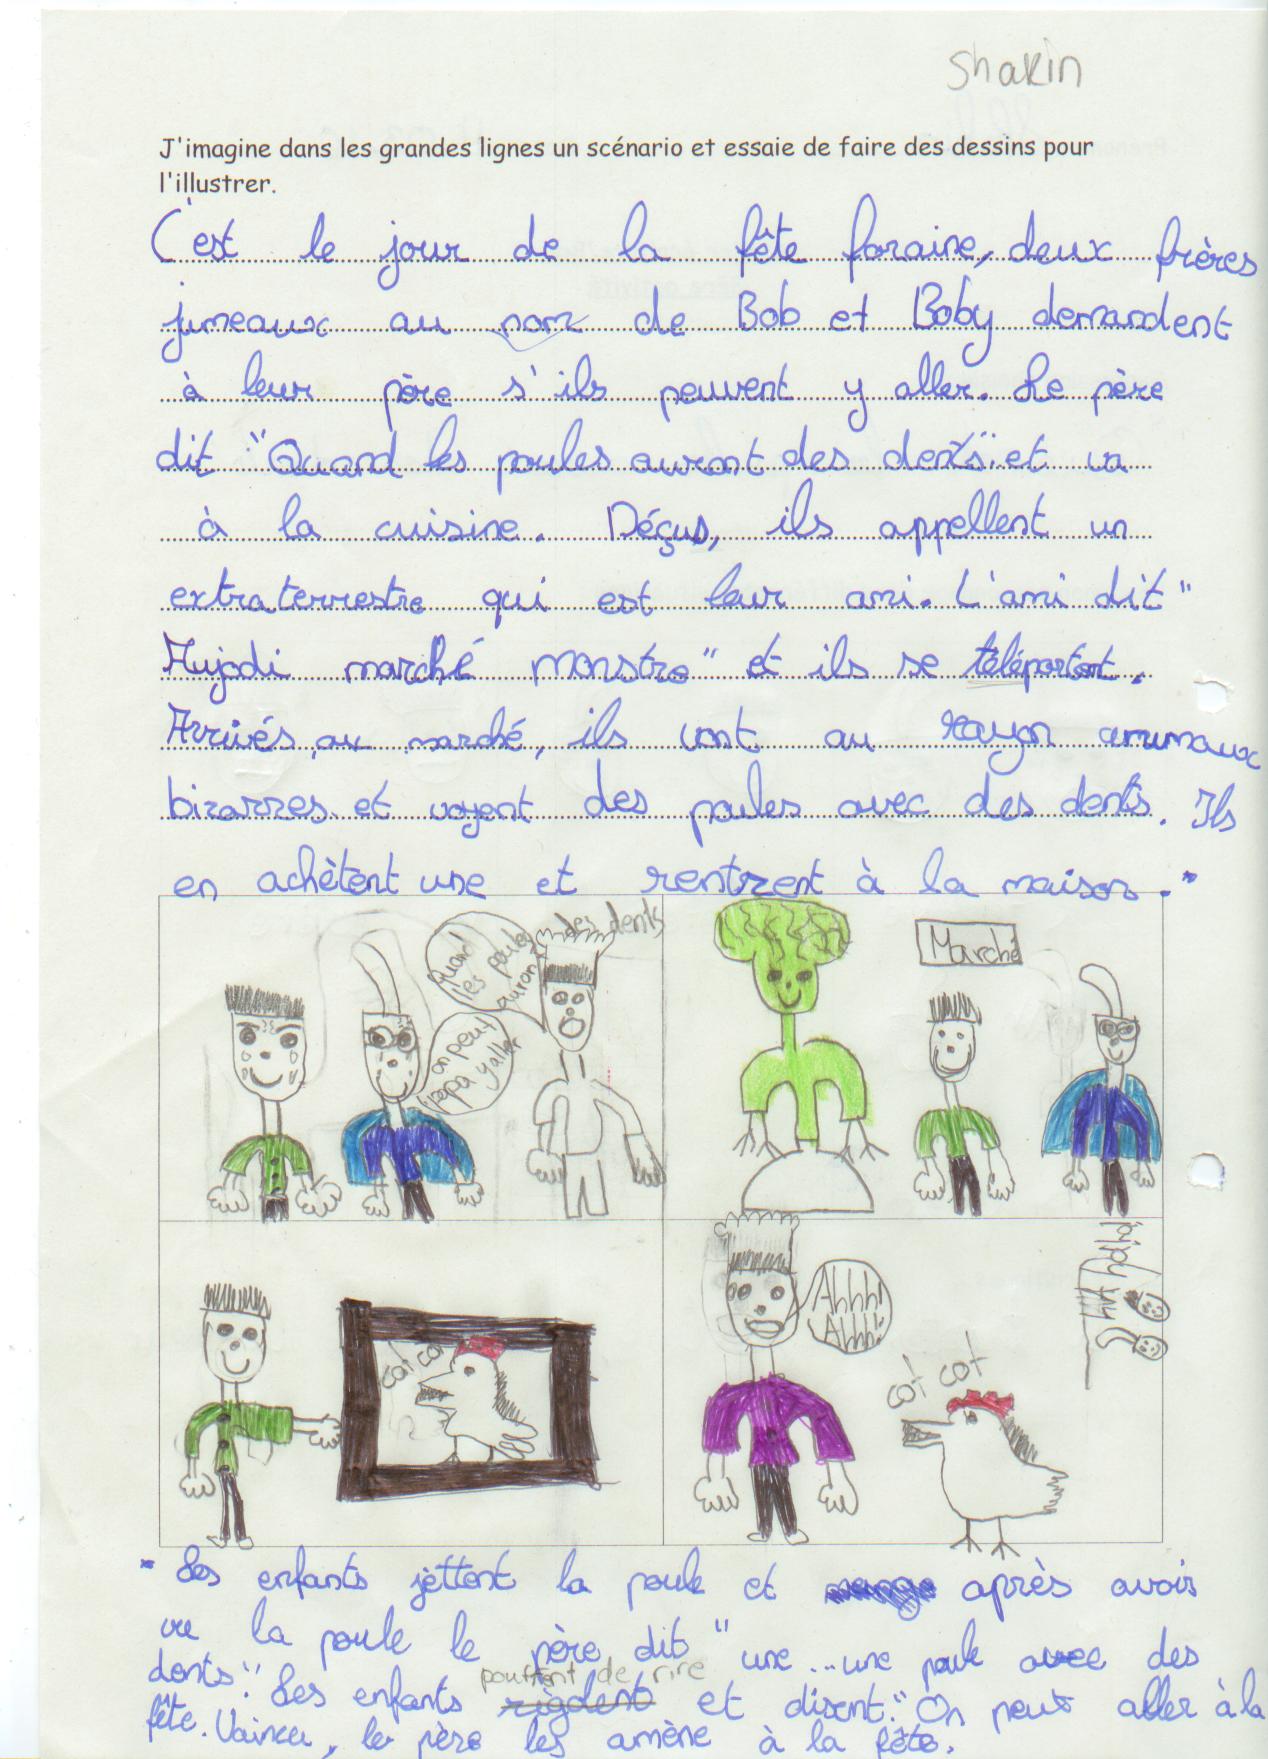 Shakin
J'imagine dans les grandes lignes un scénario et essaie de faire des dessins pour
l'illustrer.
C'est le jour de la fête foraine, deux frères
jumeaux au nom de Bob et Boby demandent
à leur père s'ils peuvent y aller. Le père
dit "Quand les poules auront des dents" et va
à la cuisine. Déçus, ils appellent un
extraterrestre qui est leur ami. L'ami dit "
Hujodi marché monstre" et ils se téléportent.
Arrivés au marché, ils vont au rayon animaux
bizarres et voyent des poules avec des dents. Ils
en achètent une et rentrent à la maison.*
Quand
les poules
auront
des dents
on peut
y aller
papa
Marché
cot cot
Ahhh!
Ahhh!
cot cot
* Les enfants jèttent la poule et après avoir
vu la poule le père dit "une... une poule avec des
dents". Les enfants pouffent de rire et disent: "On peut aller à la
fête. Vaincu, le père les amène à la fête.